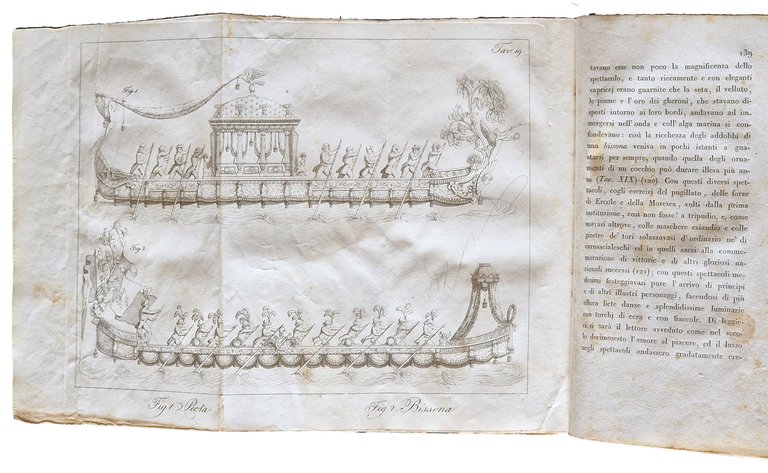 Tav. 19
Fig. 1
Fig. 2
Fig. 1 Peota
Fig. 2 Bissona
139
tavano esse non poco la magnificenza dello
spettacolo, e tanto riccamente e con eleganti
capricci erano guarnite che la seta, il velluto,
le piume e l'oro dei gheroni, che stavano di-
sposti intorno ai loro bordi, andavano ad im-
mergersi nell'onda e coll'alga marina si con-
fondevano: così la ricchezza degli addobbi di
una bissona veniva in pochi istanti a gua-
starsi per sempre, quando quella degli orna-
menti di un cocchio può durare illesa più an-
ni (Tav. XIX) (120). Con questi diversi spet-
tacoli, cogli esercizj del pugillato, delle forze
di Ercole e della Moresca, volti dalla prima
instituzione, così non fosse! a tripudio, e, come
usavasi altrove, colle maschere eziandio e colle
giostre de' tori solazzavasi d'ordinario ne' dì
carnascialeschi ed in quelli sacri alla comme-
morazione di vittorie e di altri gloriosi na-
zionali successi (121); con questi spettacoli me-
desimi festeggiavasi pure l'arrivo di principi
e di altri illustri personaggi, facendosi di più
allora liete danze e splendidissime luminarie
con torchj di cera e con fiaccole. Di leggie-
ri si sarà il lettore avveduto come nel seco-
lo decimosesto l'amore al piacere, ed il lusso
negli spettacoli andassero gradatamente cre-